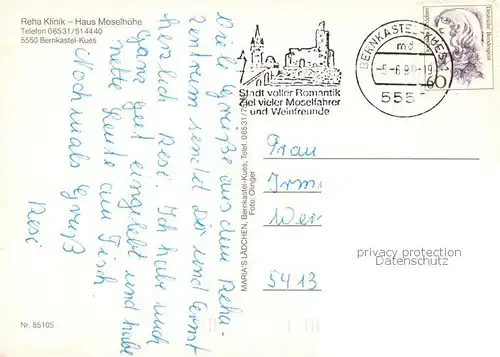 Reha Klinik – Haus Moselhöhe
Telefon 06531/51 4440
5550 Bernkastel-Kues
Viele Grüße aus dem Reha-
Zentrum sendet Dir und Ernst
herzlich Resi. Ich habe mich
ganz gut eingelebt und habe
nette Leute am Tisch.
Nochmals Gruß
Resi
Nr. 85105
MARIA'S LÄDCHEN, Bernkastel-Kues, Telef. 06531/
Foto: Olinger
Stadt voller Romantik
Ziel vieler Moselfahrer
und Weinfreunde
BERNKASTEL-KUES
md
555
60
Deutsche Bundespost
Frau
Irm
Wer
5413
privacy protection
watermark on AKpool.de